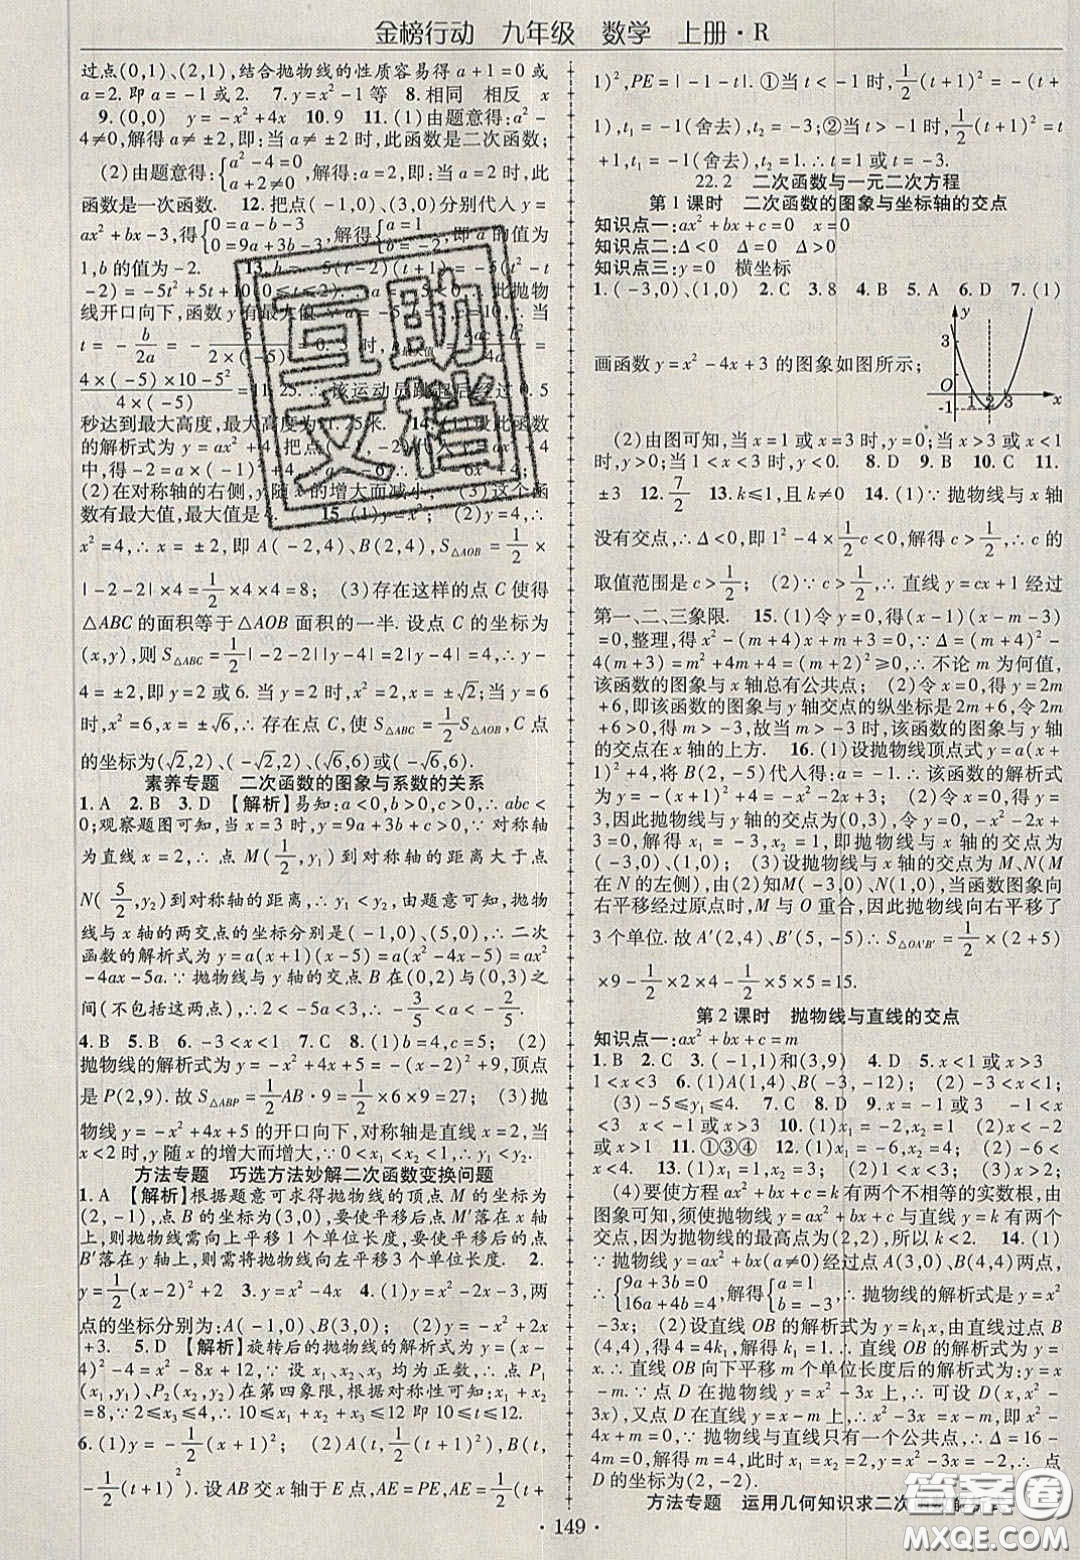 金榜行动 九年级 数学 上册·R
过点(0,1)、(2,1),结合抛物线的性质容易得a+1=0或
a=2.即a=-1或2. 7.y=x²-1等 8.相同 相反 x
9.(0,0) y=-x²+4x 10.9 11.(1)由题意得:a²-
4≠0,解得a≠±2,即:当a≠±2时,此函数是二次函数;
(2)由题意得:{a²-4=0, a+2≠0, 解得a=2,即:当a=2时,此
函数是一次函数. 12.把点(-1,0),(3,0)分别代入y=
ax²+bx-3,得{0=a-b-3 0=9a+3b-3,解得{a=1 b=-2,即a的值为
1,b的值为-2. 13.h=-5(t-2)(t+1)=-5(t²-t
-2)=-5t²+5t+10(0≤t≤2). ∵a=-5<0,∴此抛物
线开口向下,函数y有最大值
t=-b/2a=-5/2×(-5)=0.5时,
4×(-5)×10-5²/4×(-5)=11.25.∴该运动员跳起后经过0.5
秒达到最大高度,最大高度为11.25米. 14.(1)设此函数
的解析式为y=ax²+4,把点
中,得-2=a×(-1)²+4,
(2)在对称轴的右侧,y随x的增大而减小;(3)这个函
数有最大值,最大值是4. 15.(1)y=x²; (2)y=4,∴
x²=4,∴x=±2,即A(-2,4)、B(2,4),S△AOB=1/2×
|-2-2|×4=1/2×4×4=8; (3)存在这样的点C使得
△ABC的面积等于△AOB面积的一半.设点C的坐标为
(x,y),则S△ABC=1/2|-2-2||y-4|=2|y-4|=4,∴y-
4=±2,即y=2或6.当y=2时,x²=2,x=±√2;当y=6
时,x²=6,x=±√6,∴存在点C,使S△ABC=1/2S△AOB,C点
的坐标为(√2,2)、(-√2,2)、(√6,6)或(-√6,6).
素养专题 二次函数的图象与系数的关系
1.A 2.B 3.D 【解析】易知:a<0,b>0,c>0,∴abc<
0;观察题图可知,当x=3时,y=9a+3b+c>0,∵对称轴
为直线x=2,∴点M(1/2,y₁)到对称轴的距离大于点
N(5/2,y₂)到对称轴的距离,∴y₁<y₂,即y₁-y₂<0,抛物
线与x轴的两交点的坐标分别是(-1,0)、(5,0),∴二次
函数的解析式为y=a(x+1)(x-5)=a(x²-4x-5)=ax²
-4ax-5a.∵抛物线与y轴的交点B在(0,2)与(0,3)之
间(不包括这两点),∴2<-5a<3,∴-3/5<a<-2/5.
4.B 5.B 6.-3<x<1 7.C 8.(1)b=4,c=5; (2)
抛物线的解析式为y=-x²+4x+5=-(x-2)²+9,顶点
是P(2,9).故S△ABP=1/2AB·9=1/2×6×9=27; (3)抛
物线y=-x²+4x+5的开口向下,对称轴是直线x=2,当
x<2时,y随x的增大而增大,∵0<x₁<x₂<1,∴y₁<y₂.
方法专题 巧选方法妙解二次函数变换问题
1.A 【解析】根据题意可求得抛物线的顶点M的坐标为
(2,-1),点B的坐标为(3,0),要使平移后M′落在x轴
上,则抛物线需向上平移1个单位长度,要使平移后的点
B′落在y轴上,需把抛物线向左平移3个单位长度. 2.
y=1/2(x-2)²+2 3.y=x²-4x 4.(1)y=x²-2x-3,两
点的坐标分别为:A(-1,0)、B(3,0); (2)y=-x²+2x
+3. 5.D 【解析】旋转后的抛物线的解析式为y=(x-
4)²-4=x²-8x+12∵设x₁、x₂、x₃均为正数,∴点P₁
(x₁,y₁)、P₂(x₂,y₂)在第四象限,根据对称性可知:x₁+x₂
=8,∵2≤x₃≤4,∴10≤x₁+x₂+x₃≤12即10≤t≤12.
6.(1)y=-1/2(x+1)²; (2)A(t,-1/2(t+1)²),B(t,
-1/2(t+1)²).设AB交x轴于E,AE=PE,AE=1/2(t+
1)²,PE=|-1-t|.①当t<-1时,1/2(t+1)²=-(t+
1),t₁=-1(舍去),t₂=-3;②当t>-1时,1/2(t+1)²=t
+1,t₁=-1(舍去),t₂=1.∴t=1或t=-3.
22.2 二次函数与一元二次方程
第1课时 二次函数的图象与坐标轴的交点
知识点一:ax²+bx+c=0 x=0
知识点二:Δ<0 Δ=0 Δ>0
知识点三:y=0 横坐标
1.(-3,0)、(1,0) 2.C 3.8 4.B 5.A 6.D 7.(1)
画函数y=x²-4x+3的图象如图所示;
y 3 O -1 1 2 3 x
(2)由图可知,当x=1或x=3时,y=0;当x>3或x<1
时,y>0;当1<x<3时,y<0. 8.D 9.B 10.C 11.
±3 12.7/2 13.k≤1,且k≠0 14.(1)∵抛物线与x轴
没有交点,∴Δ<0,即1²-4×1/2c<0,解得c>1/2,∴c的
取值范围是c>1/2; (2)∵c>1/2,∴直线y=cx+1经过
第一、二、三象限. 15.(1)令y=0,得(x-1)(x-m-3)
=0,整理,得x²-(m+4)x+m+3=0,∵Δ=(m+4)²-
4(m+3)=m²+4m+4=(m+2)²≥0,∴不论m为何值,
该函数的图象与x轴总有公共点; (2)令x=0,得y=2m
+6,即该函数的图象与y轴交点的纵坐标是2m+6,令2m
+6>0,得m>-3,故当m>-3时,该函数的图象与y轴
的交点在x轴的上方. 16.(1)设抛物线顶点式y=a(x+
1)²+4,将B(2,-5)代入得:a=-1,∴该函数的解析式
为y=-(x+1)²+4=-x²-2x+3; (2)令x=0,得y=
3,因此抛物线与y轴的交点为(0,3),令y=0,-x²-2x+
3=0,解得x₁=-3,x₂=1,即抛物线与x轴的交点为
(-3,0)、(1,0); (3)设抛物线与x轴的交点为M、N(M
在N的左侧),由(2)知M(-3,0)、N(1,0),当函数图象向
右平移经过原点时,M与O重合,因此抛物线向右平移了
3个单位.故A′(2,4)、B′(5,-5)∴S△OA′B′=1/2×(2+5)
×9-1/2×2×4-1/2×5×5=15.
第2课时 抛物线与直线的交点
知识点一:ax²+bx+c=m
1.B 2.C 3.(-1,1)和(3,9) 4.D 5.x<1或x>3
1<x<3 6.(1)A(1,4)、B(-3,-12); (2)-3<x<1;
(3)-5≤y₁≤4. 7.C 8.D 9.x=-1或3 -1<x
<3 x<-1或x>3 10.-4 11.①③④ 12.(1)x₁=-2,x₂=6; (2)-6<x
<3; (3)-4≤x≤4. 13.(1)x₁=1,x₂=3; (2)1<x<3; (3)x>2;
(4)要使方程ax²+bx+c=k有两个不相等的实数根,由
图象可知,须使抛物线y=ax²+bx+c与直线y=k有两个
交点,因为抛物线的最高点为(2,2),所以k<2. 14.(1)
∵抛物线y=ax²+bx(a≠0)经过点A(3,0)、B(4,4)两点,
∴{9a+3b=0 16a+4b=4,解得{a=1 b=-3,∴抛物线的解析式是y=x²
-3x; (2)设直线OB的解析式为y=k₁x,由直线过点B
(4,4),得4=4k₁,解得k₁=1.∴直线OB的解析式为y=
x.∴直线OB向下平移m个单位长度后的解析式为:y=
x-m.∵点D在抛物线y=x²-3x上,∴可设D(x,x²-
3x),又点D在直线y=x-m上,∴x²-3x=x-m,即x²-
4x+m=0,∵抛物线与直线只有一个公共点,∴Δ=16-
4m=0,解得m=4,此时x₁=x₂=2,y=x²-3x=-2,∴点
D的坐标为(2,-2).
方法专题 运用几何知识求二次
·149·
互助文档
答案圈
MXQE.COM